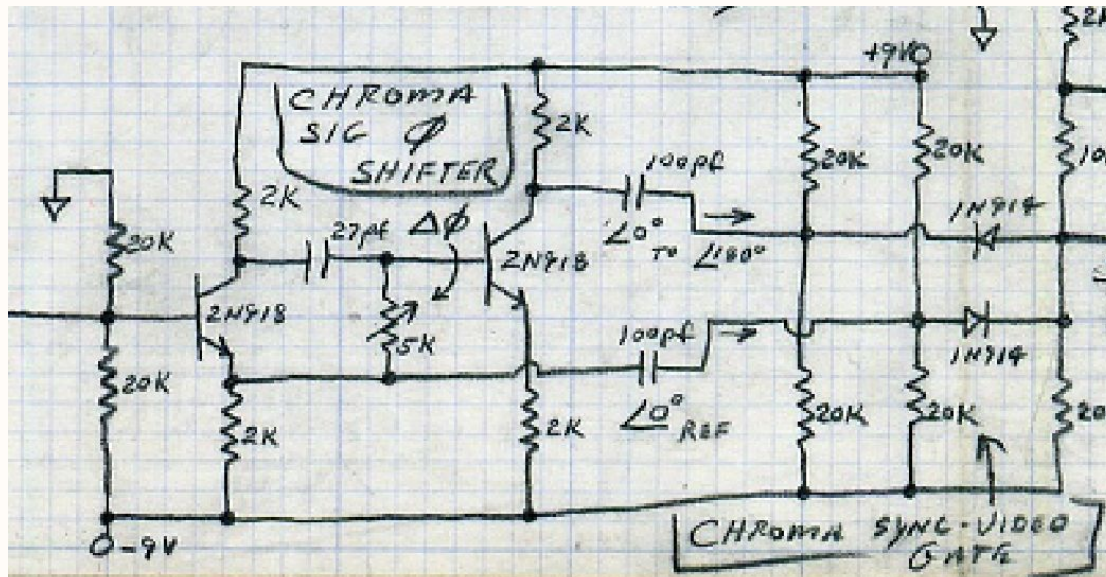 +9V
CHROMA
SIG Ø
SHIFTER
2K
2K
20K
20K
100pf
27pf
ΔØ
1N914
20K
∠0°
TO
∠180°
2N918
2N918
5K
100pf
1N914
20K
2K
2K
∠0°
REF
20K
20K
-9V
CHROMA SYNC-VIDEO
GATE